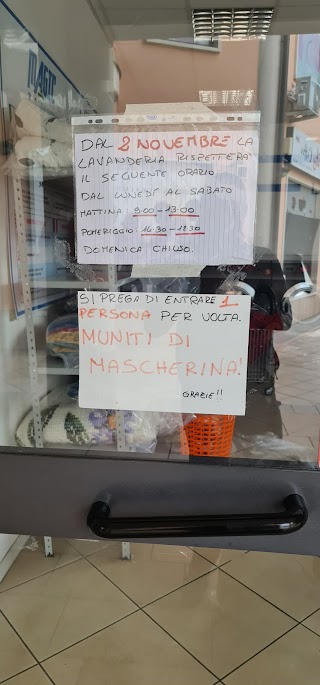 MAGIC
DAL 2 NOVEMBRE LA
LAVANDERIA RISPETTERA'
IL SEGUENTE ORARIO
DAL LUNEDI' AL SABATO
MATTINA: 9:00 - 13:00
POMERIGGIO: 16:30 - 18:30
DOMENICA CHIUSO.
SI PREGA DI ENTRARE 1
PERSONA PER VOLTA.
MUNITI DI
MASCHERINA!
GRAZIE!!